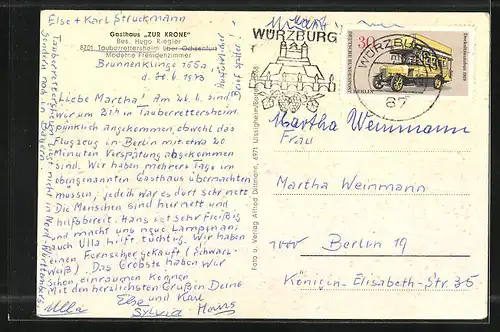 Else + Karl Struckmann
Gasthaus „ZUR KRONE"
Bes. Hugo Riegler
8701 Tauberrettersheim über Ochsenfurt
Moderne Fremdenzimmer
Brunnenklinge 155a
d. 30.6.1973
Liebe Martha! Am 26.6. sind
wir um 21h in Tauberrettersheim
pünklich angekommen obwohl das
Flugzeug in Berlin mit etwa 20
Minuten Verspätung abgekommen
sind. Wir haben mehrere Tage im
obengenannten Gasthaus übernachten
müssen, jedoch war es dort sehr nett
Die Menschen sind hier nett und
hilfsbereit. Hans ist sehr fleißig
und macht uns neue Lampen an,
auch Ulla hilft tüchtig. Wir haben
einen Fernseher gekauft (Schwarz-
Weiß). Das Gröbste haben wir
schon einräumen können
Mit den herzlichsten Grüßen Deine
Else und Karl
Ulla
Sylvia
Hans
Tauberrettersheim liegt nicht in
Sondern 700 m in Bayern
Brief später!
Foto u. Verlag Alfred Dittmann, 6971 Uissigheim/Bad
WÜRZBURG
WÜRZBURG
87
30
DEUTSCHE BUNDESPOST
BERLIN
Martha Weinmann
Frau
Martha Weinmann
1000 Berlin 19
Königin-Elisabeth-Str. 35